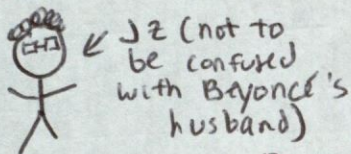 JZ (not to
be confused
with Beyoncé's
husband)